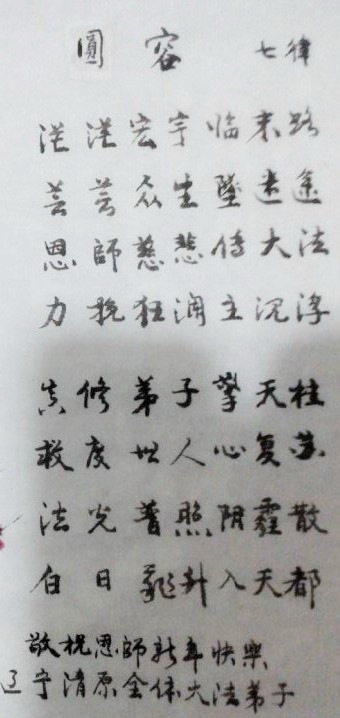 圓容 七律
茫茫宏宇临末路
芸芸众生墜迷途
恩師慈悲传大法
力挽狂澜主沉浮
真修弟子擎天柱
救度世人心复苏
法光普照阴霾散
白日飛升入天都
敬祝恩師新年快樂
辽宁清原全体大法弟子